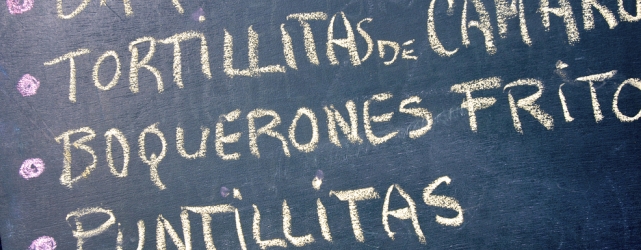 TORTILLITAS DE CAMARO
BOQUERONES FRITO
PUNTILLITAS